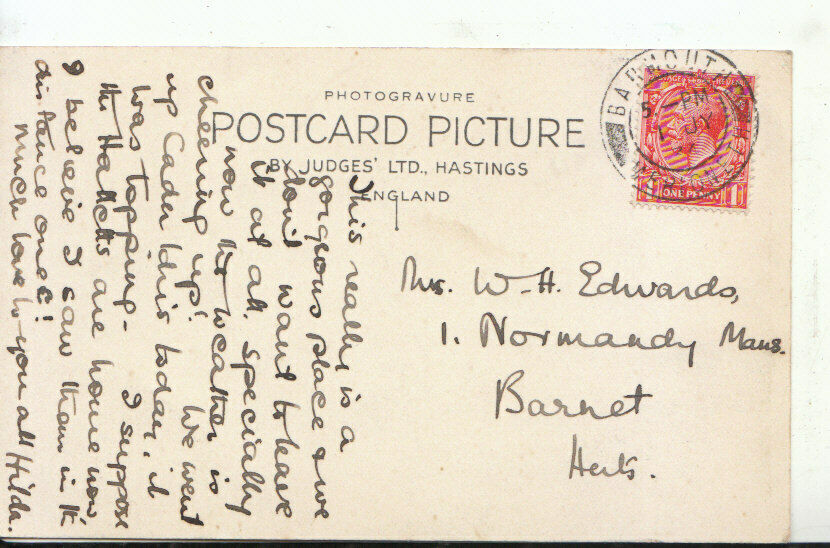 PHOTOGRAVURE
POSTCARD PICTURE
BY JUDGES' LTD., HASTINGS
ENGLAND
BARMOUTH
PM
ONE PENNY
Mrs. W. H. Edwards,
1. Normandy Mans.
Barnet
Herts.
This really is a
gorgeous place & we
don't want to leave
it at all, specially
now the weather is
cheering up! We went
up Cader Idris today, it
was topping. I suppose
the Halletts are home now,
I believe I saw them in the
distance once!
Much love to you all Hilda.